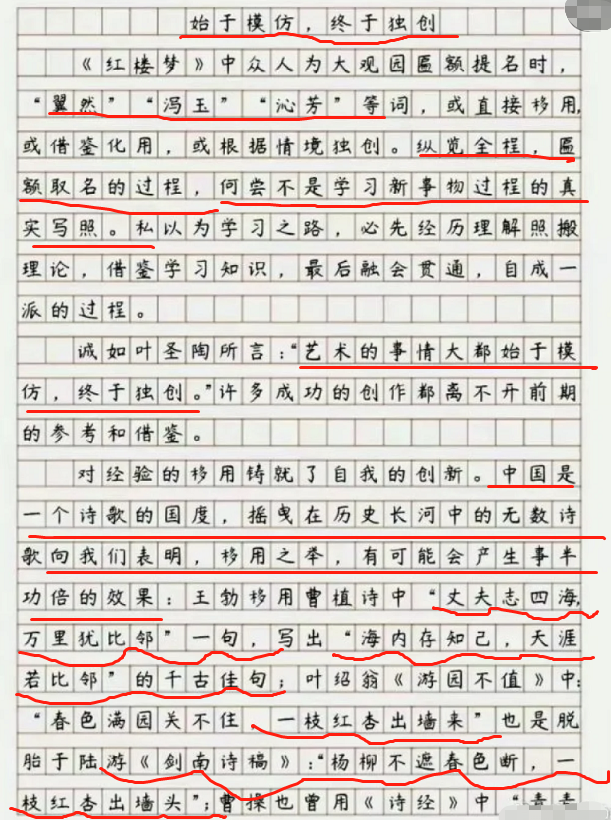 始于模仿，终于独创
《红楼梦》中众人为大观园匾额提名时，
“翼然”“泻玉”“沁芳”等词，或直接移用，
或借鉴化用，或根据情境独创。纵览全程，匾
额取名的过程，何尝不是学习新事物过程的真
实写照。私以为学习之路，必先经历理解照搬
理论，借鉴学习知识，最后融会贯通，自成一
派的过程。
诚如叶圣陶所言：“艺术的事情大都始于模
仿，终于独创。”许多成功的创作都离不开前期
的参考和借鉴。
对经验的移用铸就了自我的创新。中国是
一个诗歌的国度，摇曳在历史长河中的无数诗
歌向我们表明，移用之举，有可能会产生事半
功倍的效果：王勃移用曹植诗中“丈夫志四海，
万里犹比邻”一句，写出“海内存知己，天涯
若比邻”的千古佳句；叶绍翁《游园不值》中：
“春色满园关不住 一枝红杏出墙来”也是脱
胎于陆游《剑南诗稿》：“杨柳不遮春色断，一
枝红杏出墙头”；曹操也曾用《诗经》中“青青